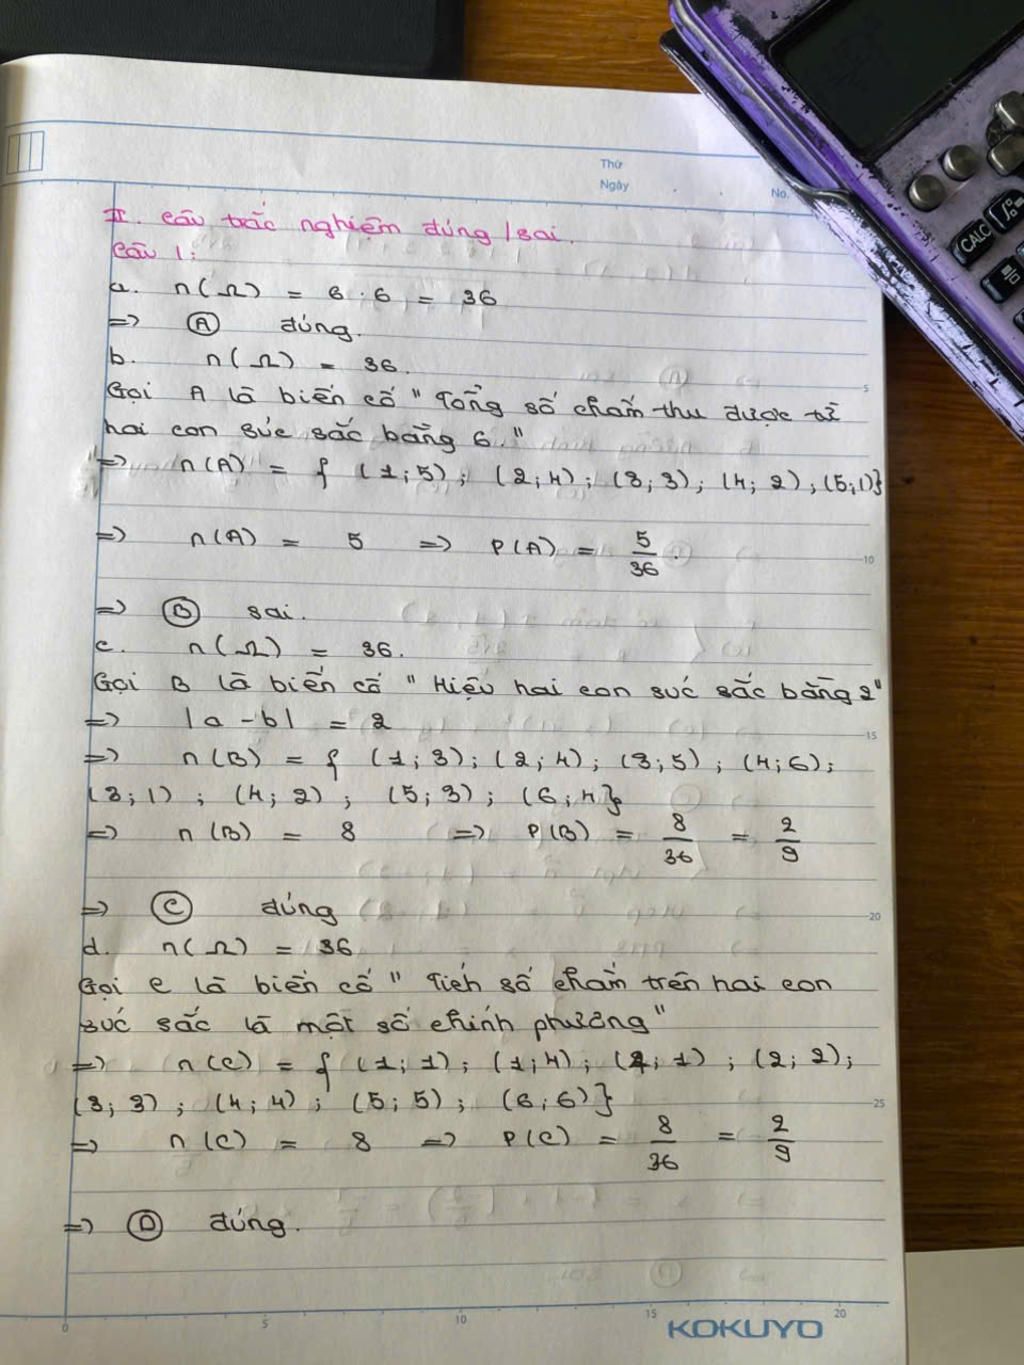 Thứ
Ngày
No.
II. Câu trắc nghiệm đúng / sai.
Câu 1:
a. n(Ω) = 6 . 6 = 36
=> Ⓐ đúng.
b. n(Ω) = 36.
Gọi A là biến cố " Tổng số chấm thu được từ
hai con súc sắc bằng 6."
=> n(A) = { (1;5); (2;4); (3;3); (4;2); (5;1)}
=> n(A) = 5 => P(A) = 5/36.
=> Ⓑ sai.
c. n(Ω) = 36.
Gọi B là biến cố " Hiệu hai con súc sắc bằng 2"
=> |a - b| = 2
=> n(B) = { (1;3); (2;4); (3;5); (4;6);
(3;1); (4;2); (5;3); (6;4}
=> n(B) = 8 => P(B) = 8/36 = 2/9
=> Ⓒ đúng
d. n(Ω) = 36
Gọi C là biến cố " Tích số chấm trên hai con
súc sắc là một số chính phương"
=> n(C) = { (1;1); (1;4); (4;1); (2;2);
(3;3); (4;4); (5;5); (6;6)}
=> n(C) = 8 => P(C) = 8/36 = 2/9
=> Ⓓ đúng.
5
10
15
20
25
0 5 10 15 20
KOKUYO
CALC